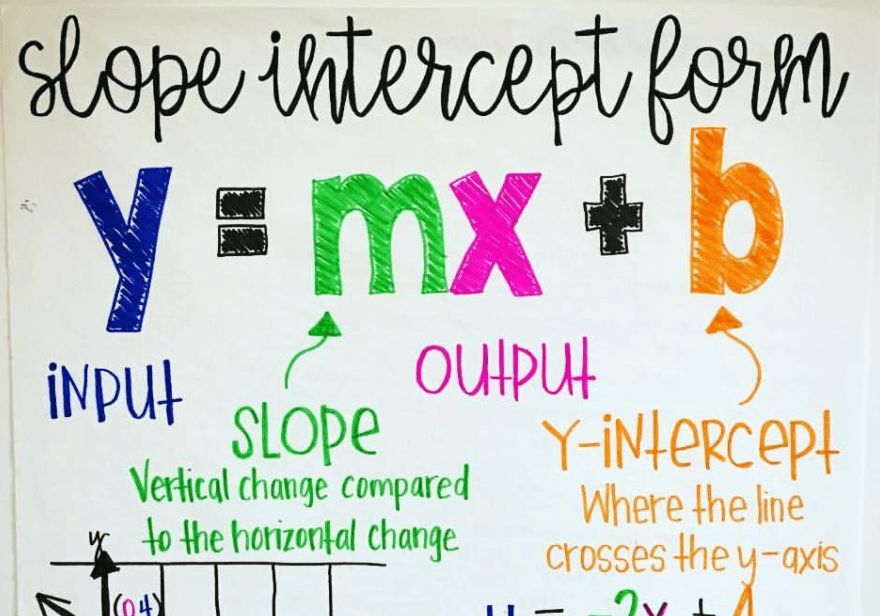 slope intercept form
y = mx + b
iNPUt
OUtPUt
SLOPe
Y-iNteRCePt
Vertical change compared
to the horizontal change
Where the line
crosses the y-axis
y
(0,4)
y = -2x + 4